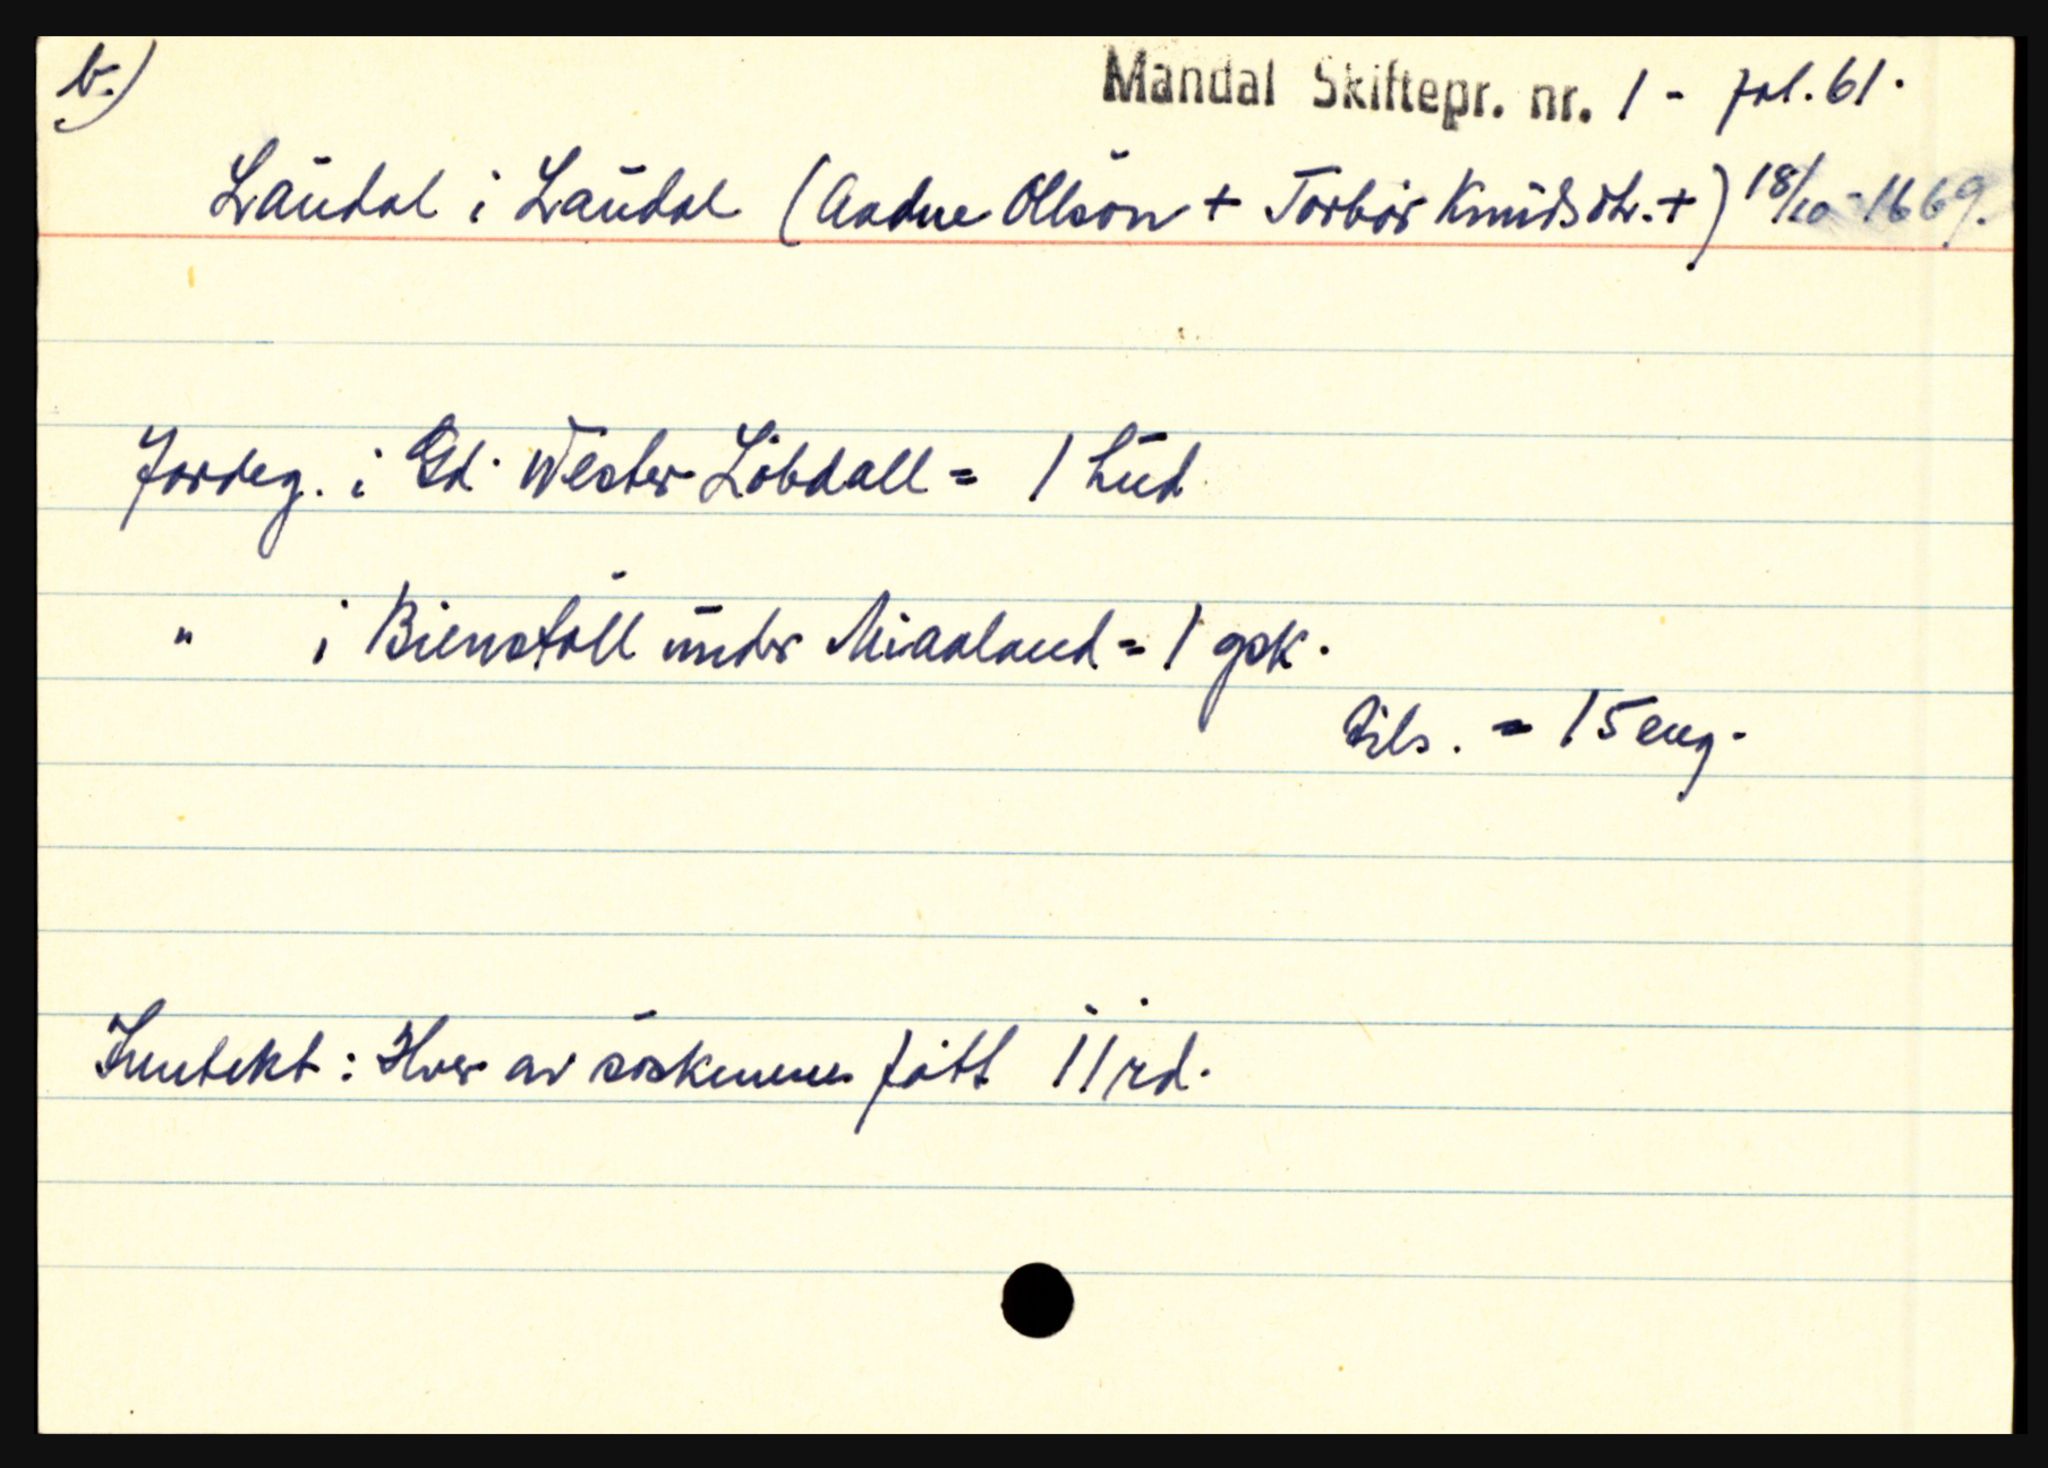 b.)
Mandal Skiftepr. nr. 1 - fol. 61.
Laudal i Laudal (Aadne Olsøn + Torbør Knudsdtr. +) 18/10 - 1669.
Jordeg. i Gd. Wester Löbdall = 1 hud
" i Bienstøll under Miaaland = 1 gsk.
tils. = 15 eng.
Inntekt: Hver av søsknene fått 11 rd.